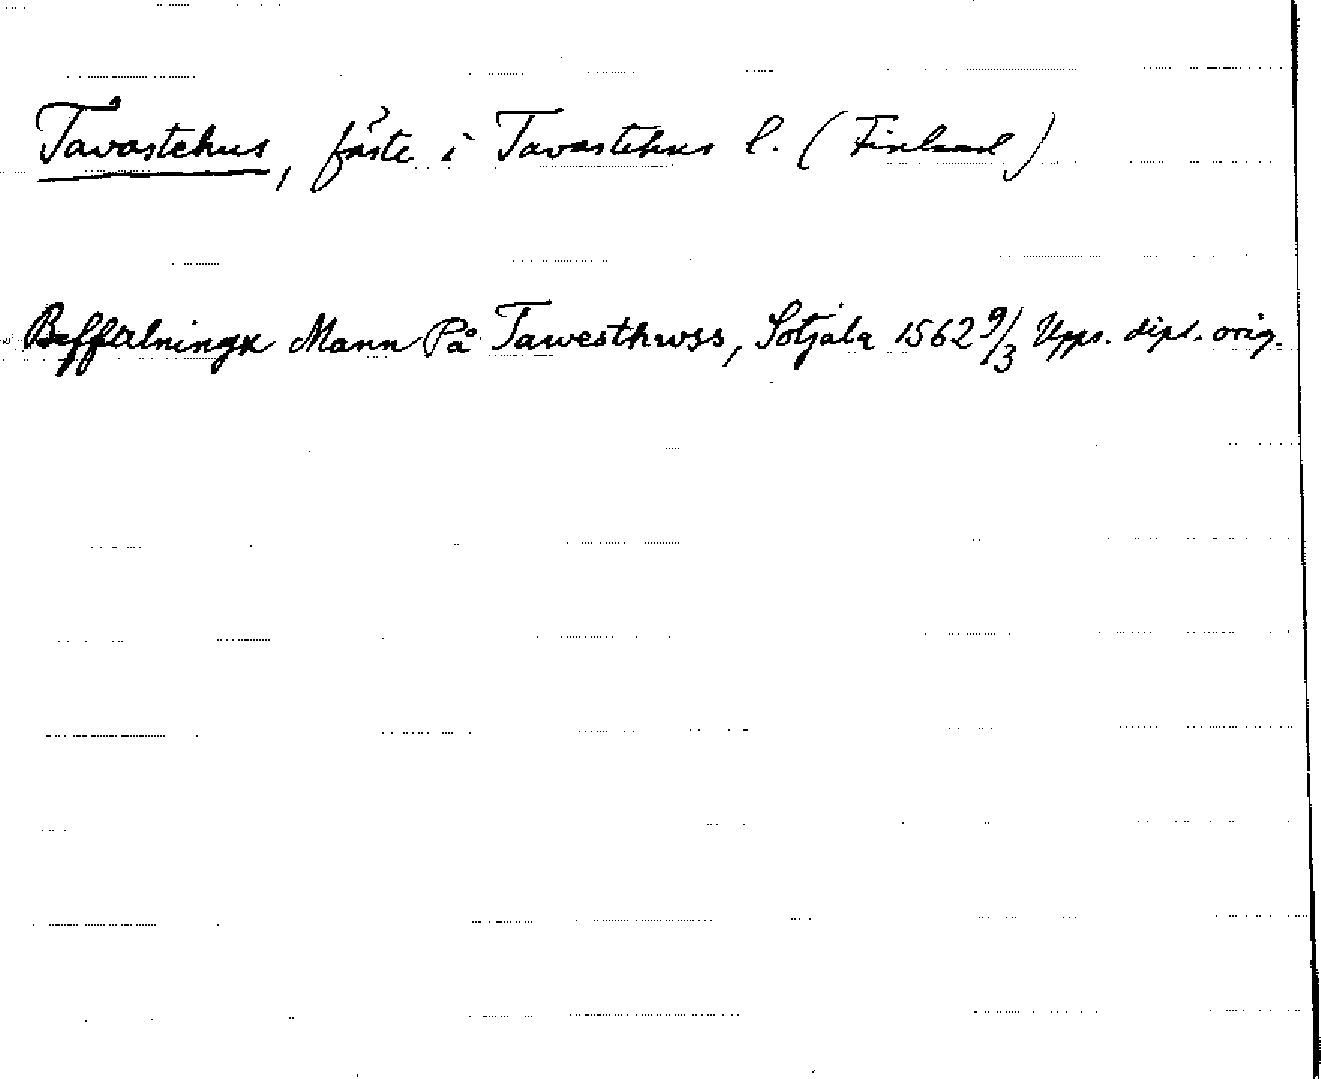 Tavastehus, fäste i Tavastehus l. (Finland)
Beffalningx Mann På Tawesthwss, Sotjala 1562 9/3 Upps. dipl. orig.